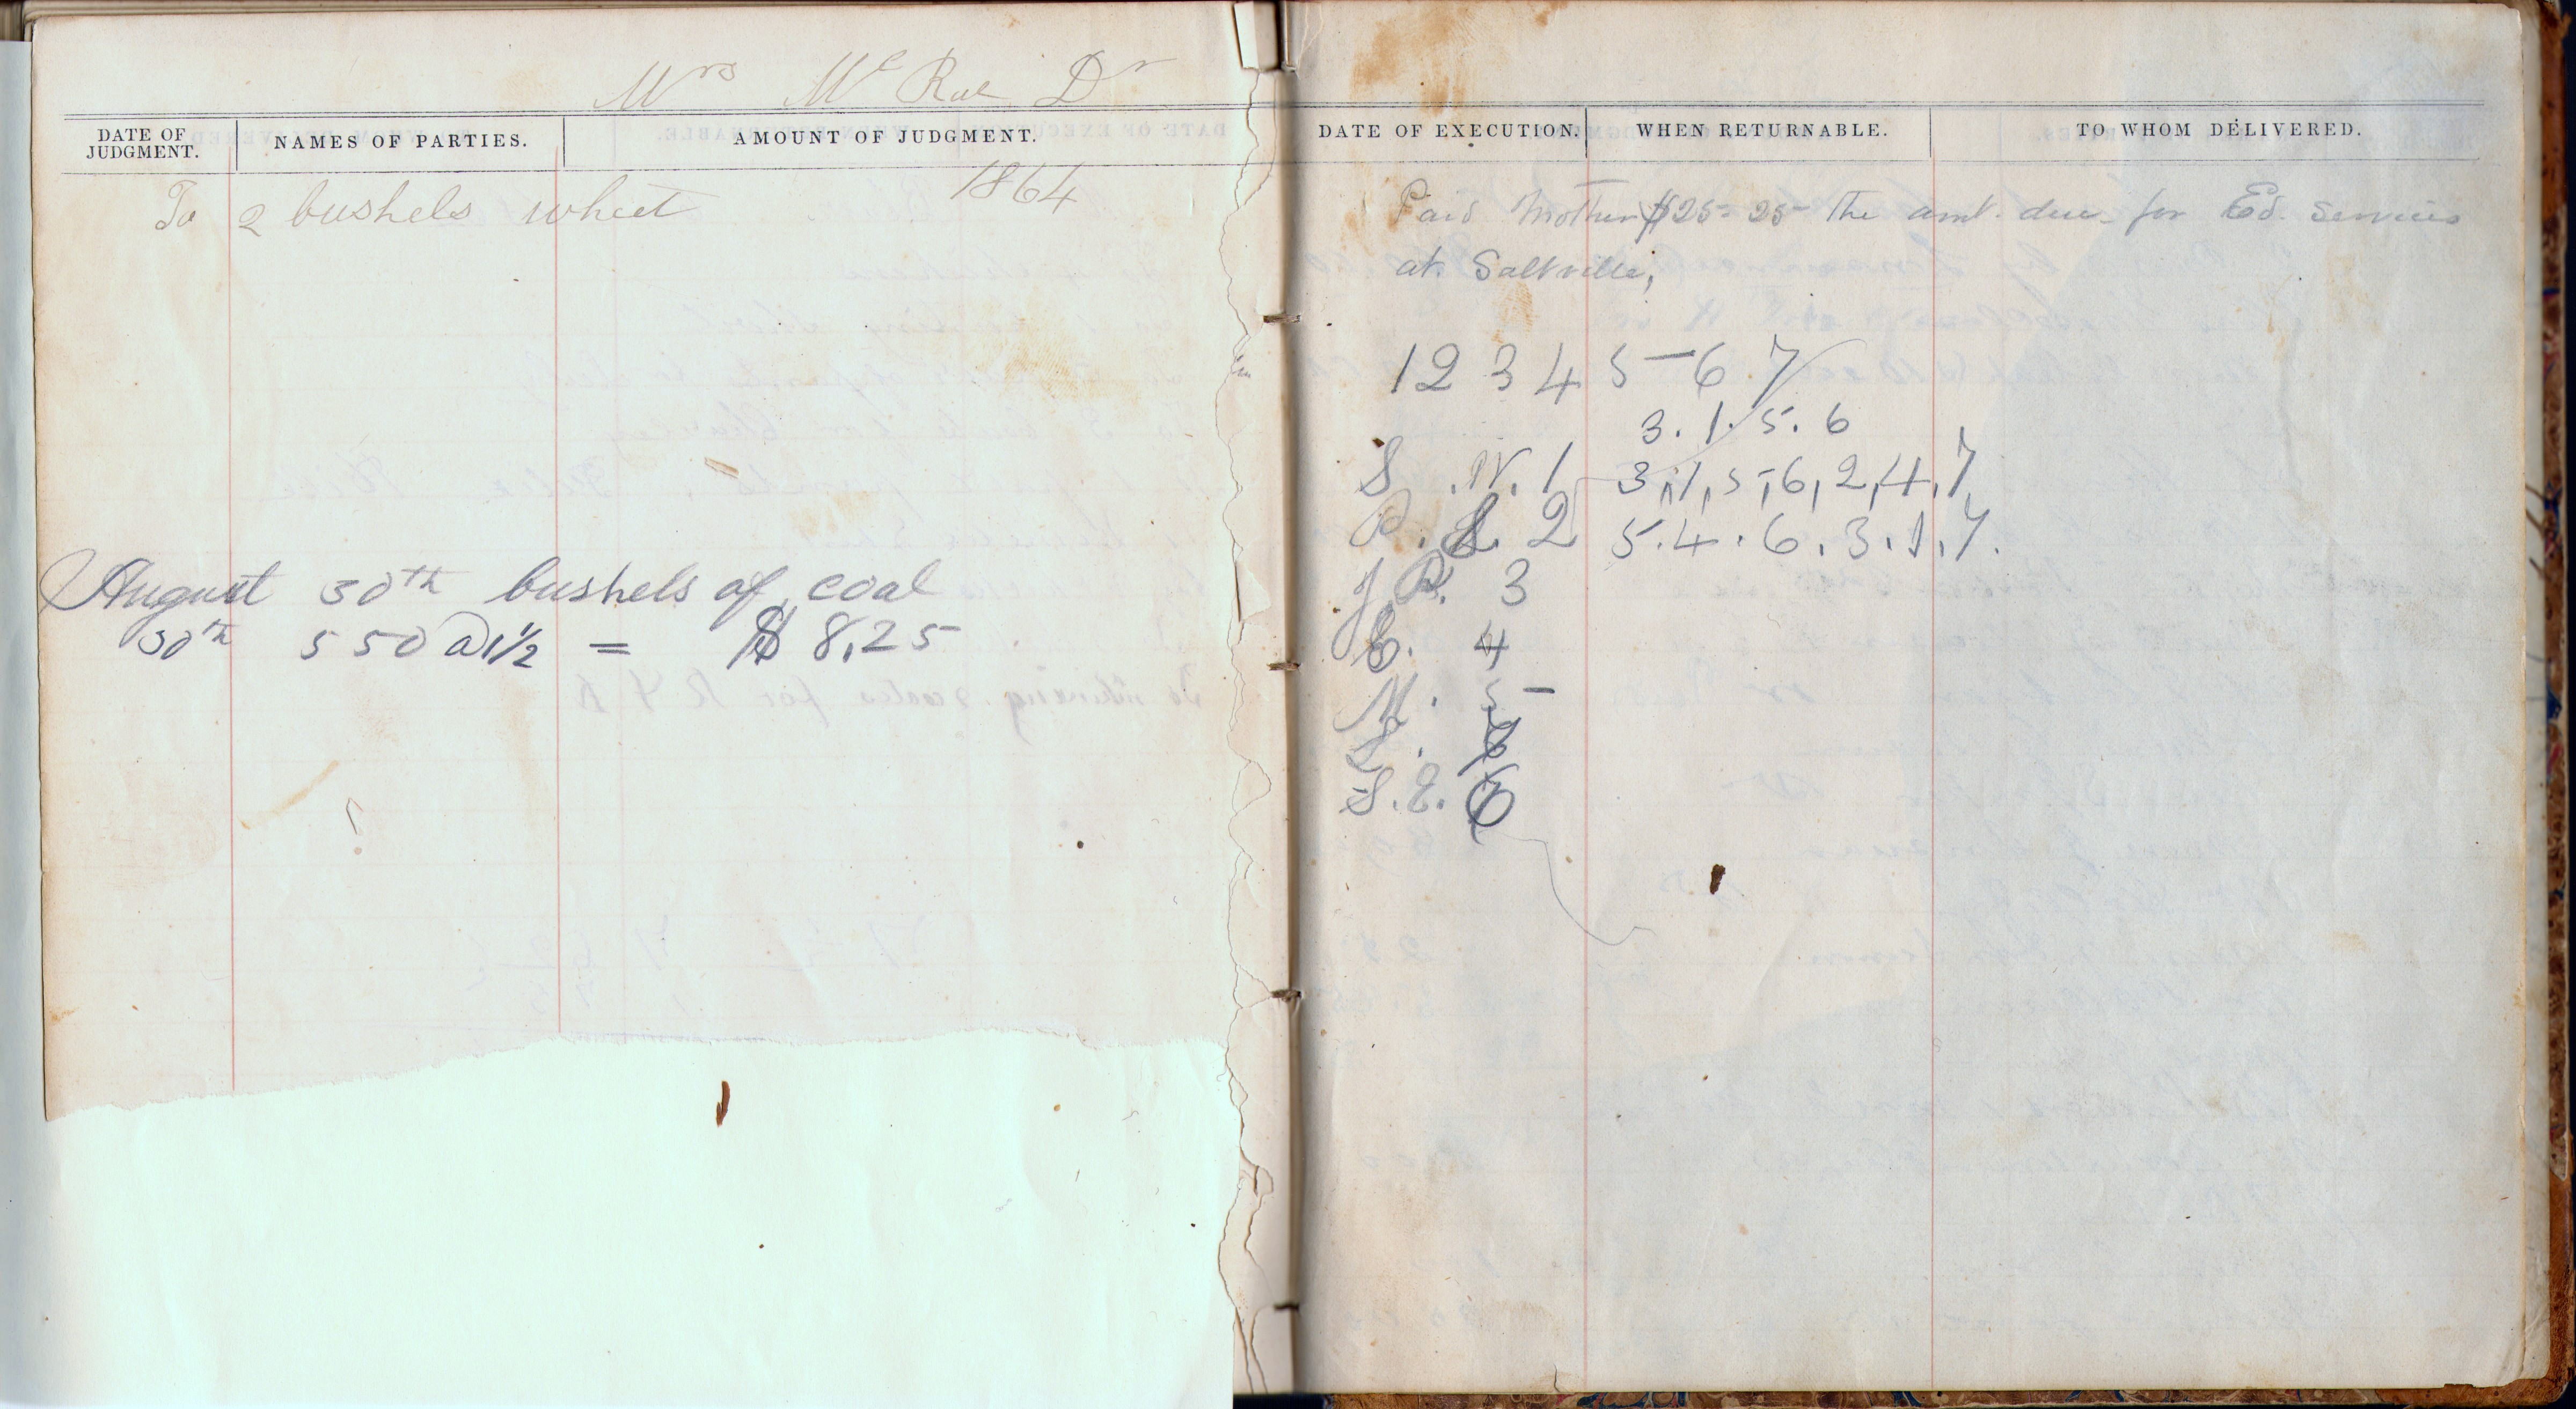 Mrs Mc Rae Dr
DATE OF JUDGMENT. NAMES OF PARTIES. AMOUNT OF JUDGMENT.
1864
To 2 bushels wheet
August 30th bushels of coal
30th 550 @ 1½ = $8,25
DATE OF EXECUTION. WHEN RETURNABLE. TO WHOM DELIVERED.
Paid Mother $25=25 the amt. due for Ed. Services
at Saltville,
1 2 3 4 5 6 7
3. 1. 5. 6
S. W. 1 3, 1, 5, 6, 2, 4, 7
P. S. 2 5. 4. 6. 3. 1. 7.
J. P. 3
C. 4
M. 5
L.
S. E. 6